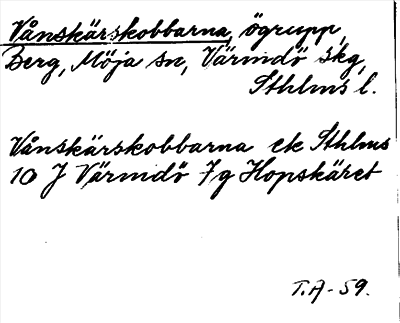 Vånskärskobbarna, ögrupp,
Berg, Möja sn, Värmdö skg,
Sthlms l.
Vånskärskobbarna ek Sthlms
10 J Värmdö 7g Hopskäret
T.A-59.